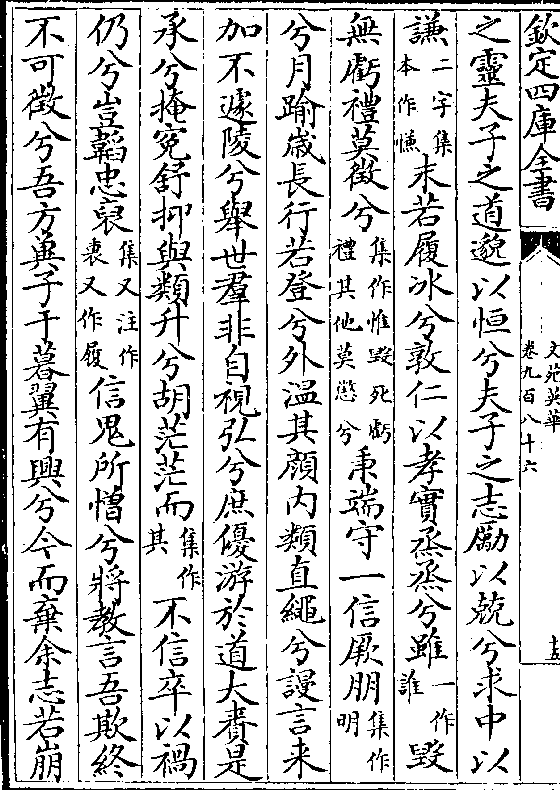 欽定四庫全書
文苑英華
卷九百八十六
之靈夫子之道邈以恒兮夫子之志勵以兢兮求中以
謙二字集本作慊末若履冰兮敦仁以孝實烝烝兮雖一作誰毀
無虧禮莫徵兮集作惟毀死虧禮其他莫懲兮秉端守一信厥朋集作明
兮月踰歲長行若登兮外溫其顔内類直繩兮謾言来
加不遽陵兮舉世羣非自視弘兮庶優游於道大賚是
承兮掩宛舒抑與類升兮胡茫茫而集作其不信卒以禍
仍兮豈韜忠裒集又注作衷又作履信鬼所憎兮將教言吾欺終
不可徵兮吾方兾子于暮翼有興兮今而棄余志若崩